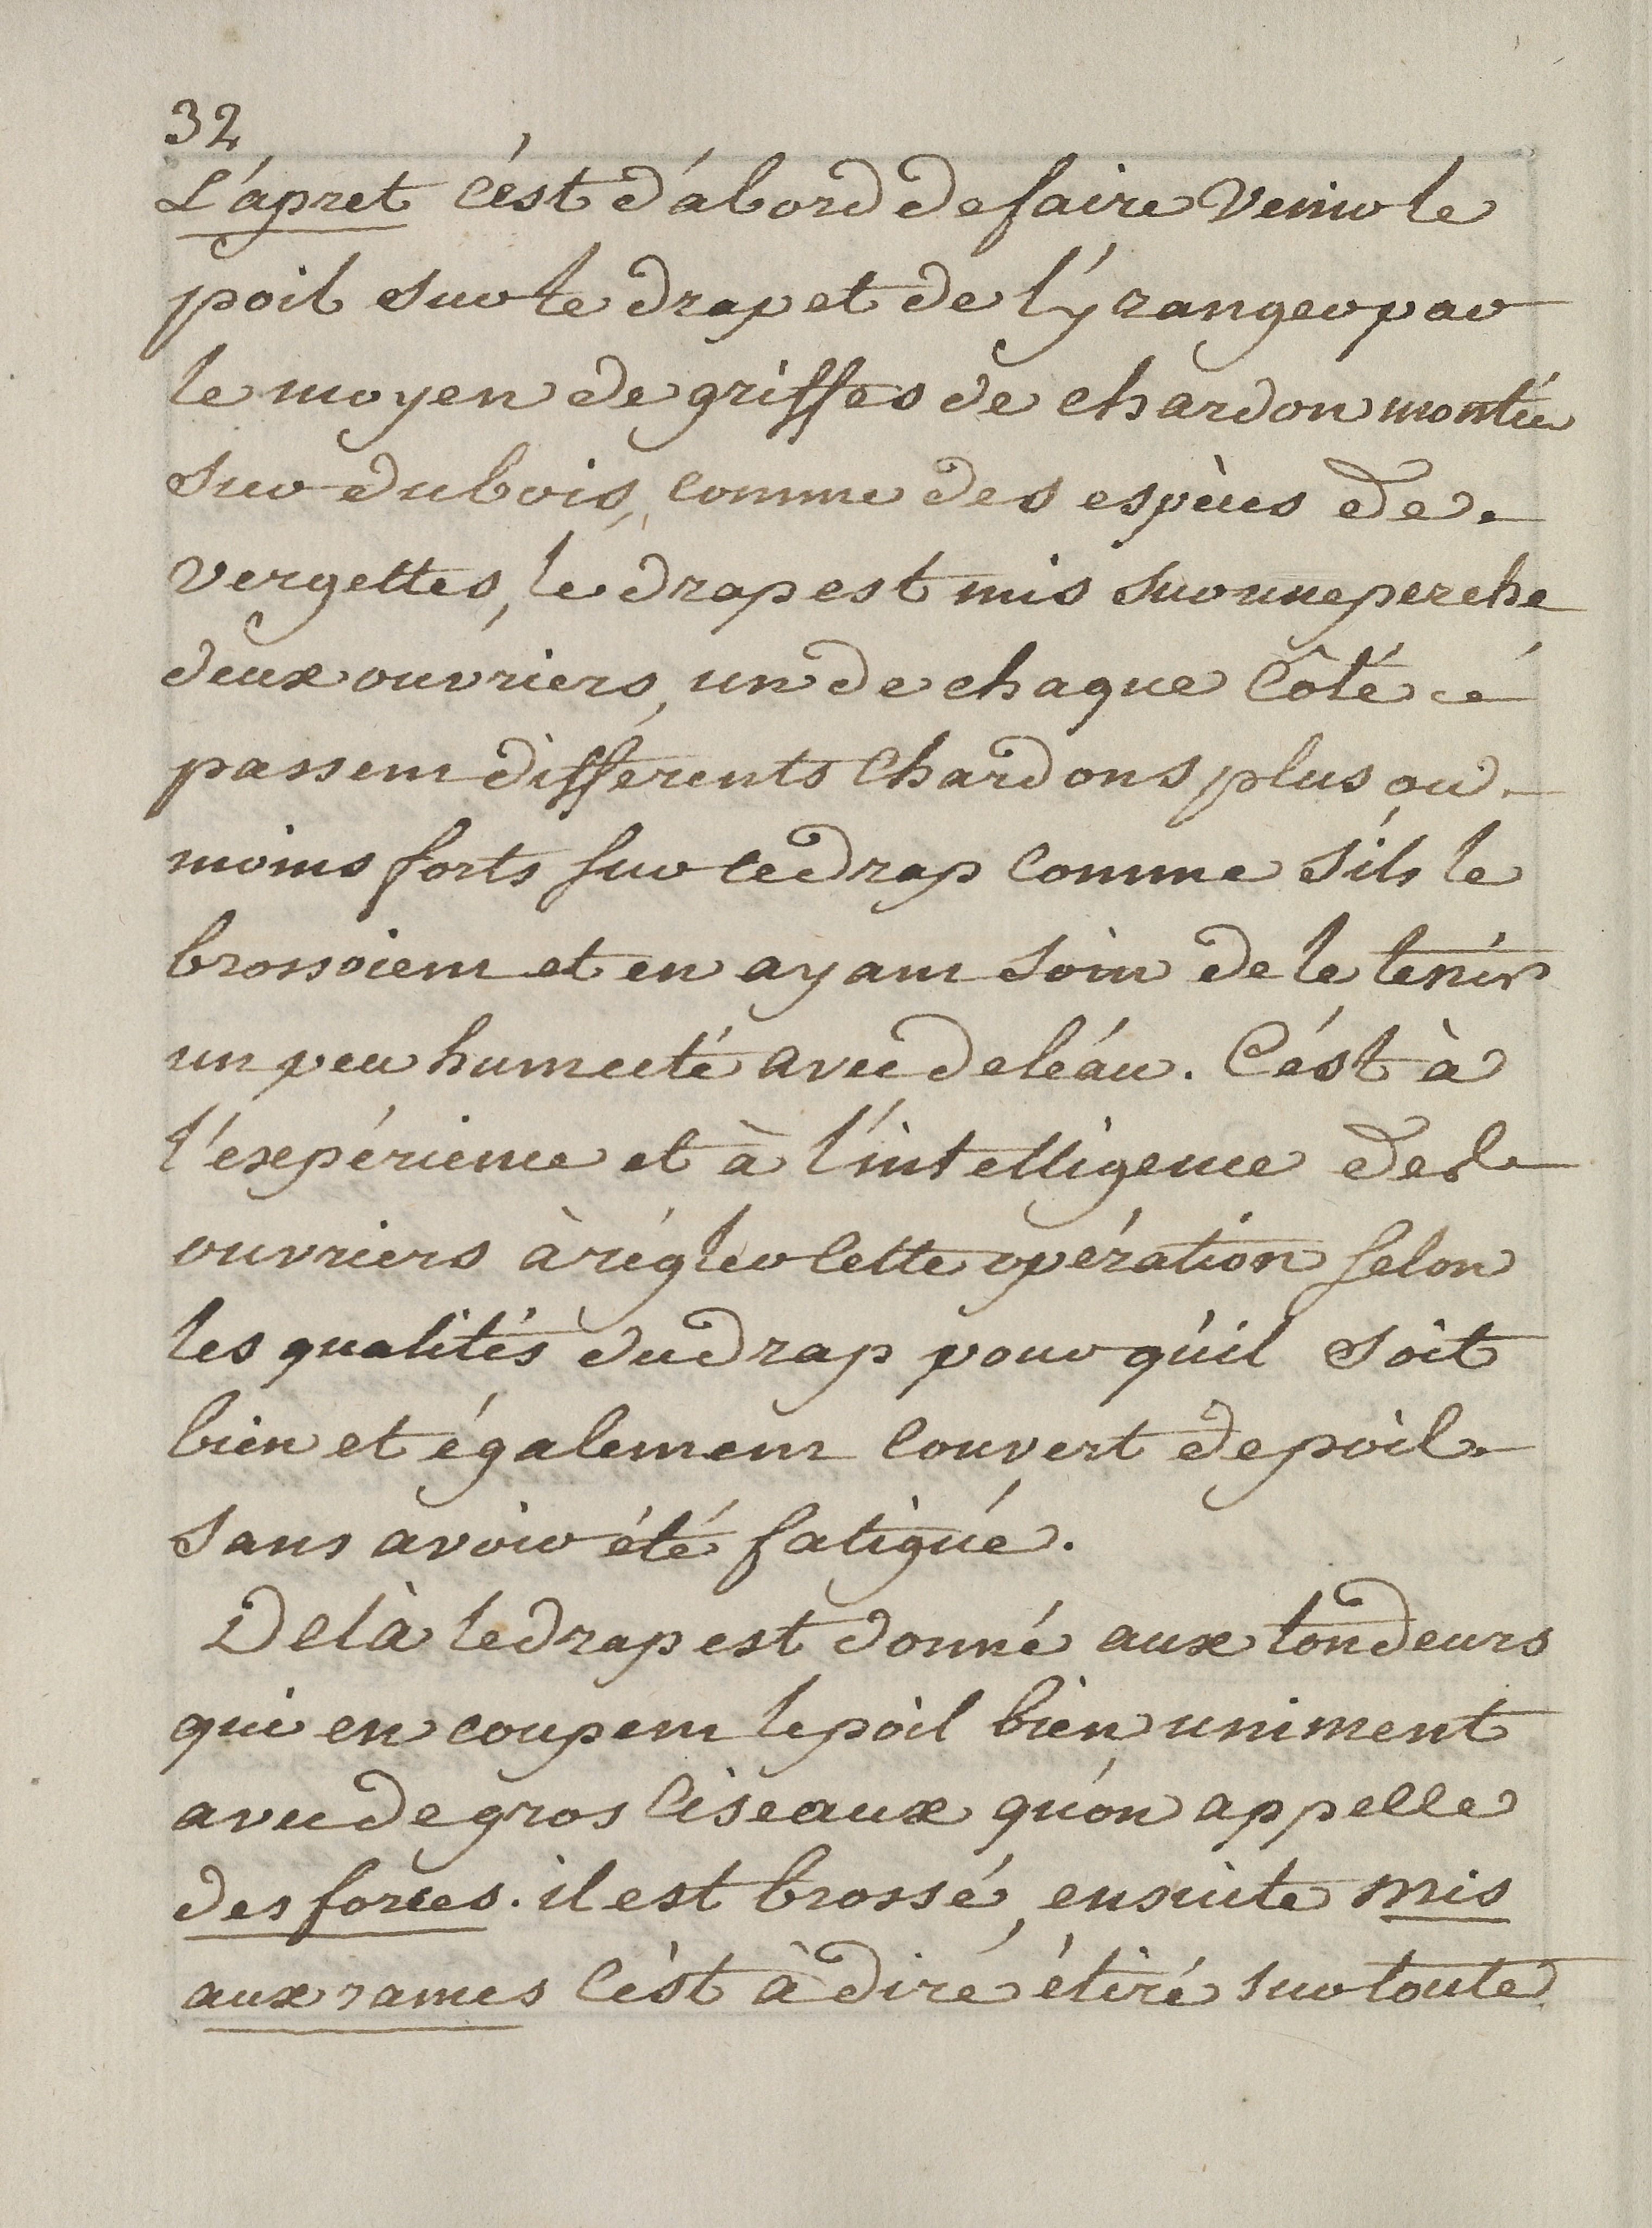 32
L'apret c'est d'abord de faire venir le
poil sur le drap et de l'y ranger par
le moyen de griffes de chardon montées
sur du bois, comme des espèces de
vergettes, le drap est mis sur une perche
deux ouvriers, un de chaque côté
passent différents chardons plus ou
moins forts sur le drap comme s'ils le
brossoient et en ayant soin de le tenir
un peu humecté avec de l'eau. C'est à
l'expérience et à l'intelligence des
ouvriers à régler cette opération selon
les qualités du drap pour qu'il soit
bien et également couvert de poil
sans avoir été fatigué.
De là le drap est donné aux tondeurs
qui en coupent le poil bien uniment
avec de gros ciseaux qu'on appelle
des forces. il est brossé, ensuite mis
aux rames c'est à dire étiré sur toute